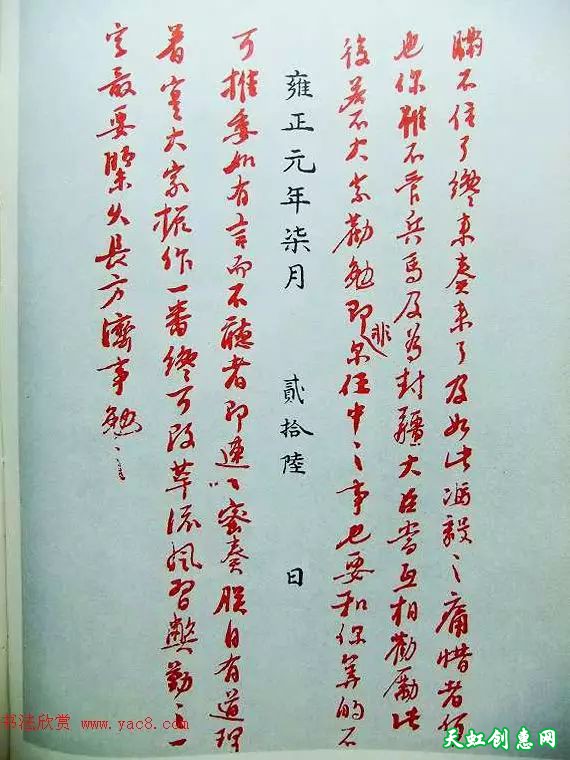 瞞不住了纔来奏来了及如此之痛惜者何
也你雖不管兵馬及為封疆大臣當互相勸勵此
後若不大家勸勉即非尔任中之事也要和你算的不
雍正元年柒月 貳拾陸 日
可推委如有言而不聽者即速以密奏朕自有道理
着實大家振作一番纔可改革流風習弊勤之一
字最要緊久長方濟事勉之
书法欣赏 www.yac8.com
天虹创惠网